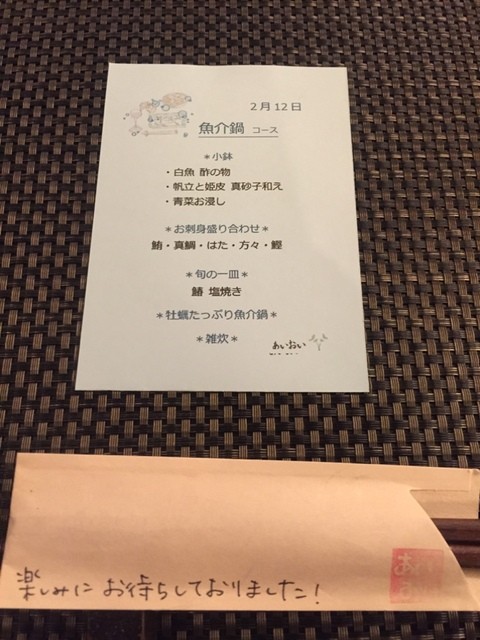 2月12日
魚介鍋 コース
*小鉢
・白魚 酢の物
・帆立と姫皮 真砂子和え
・青菜お浸し
*お刺身盛り合わせ*
鮪・真鯛・はた・方々・鰹
*旬の一皿*
鰆 塩焼き
*牡蠣たっぷり魚介鍋*
*雑炊*
あいおい
楽しみにお待ちしておりました!